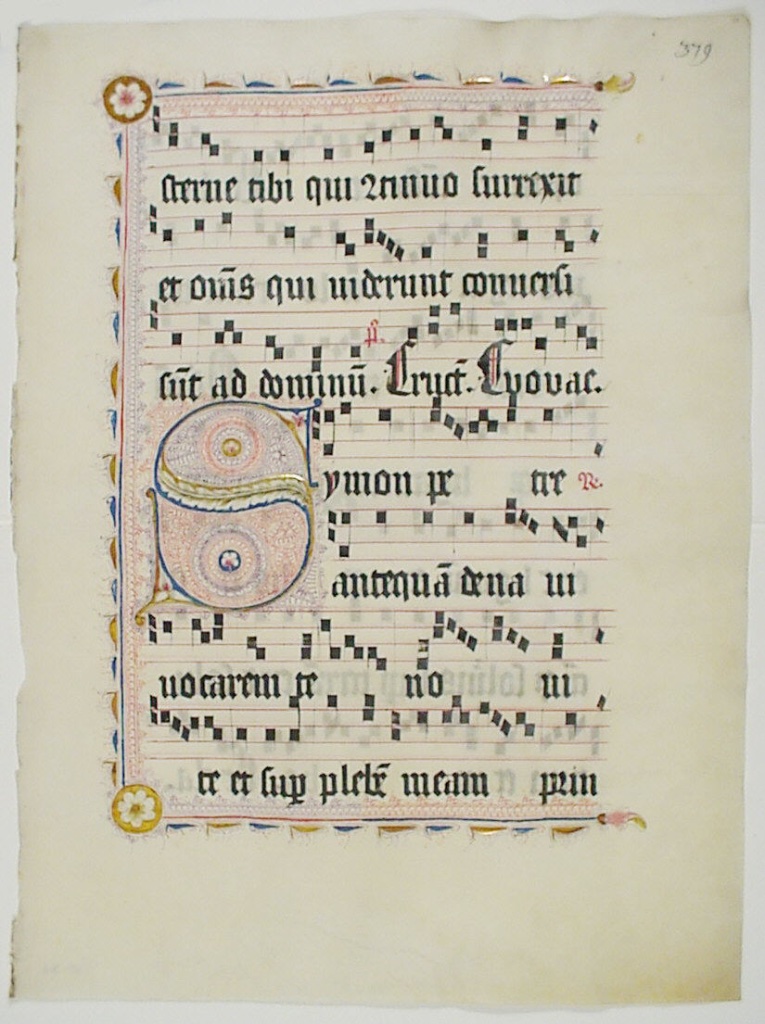 379
sterne tibi qui ꝯtinuo surrexit
et om̄s qui uiderunt conuersi
sūt ad dominū. Cruct̄. Euouae.
Symon pe tre ℟.
antequā de na ui
uocarem te no ui
te et suꝑ plebē meam prin